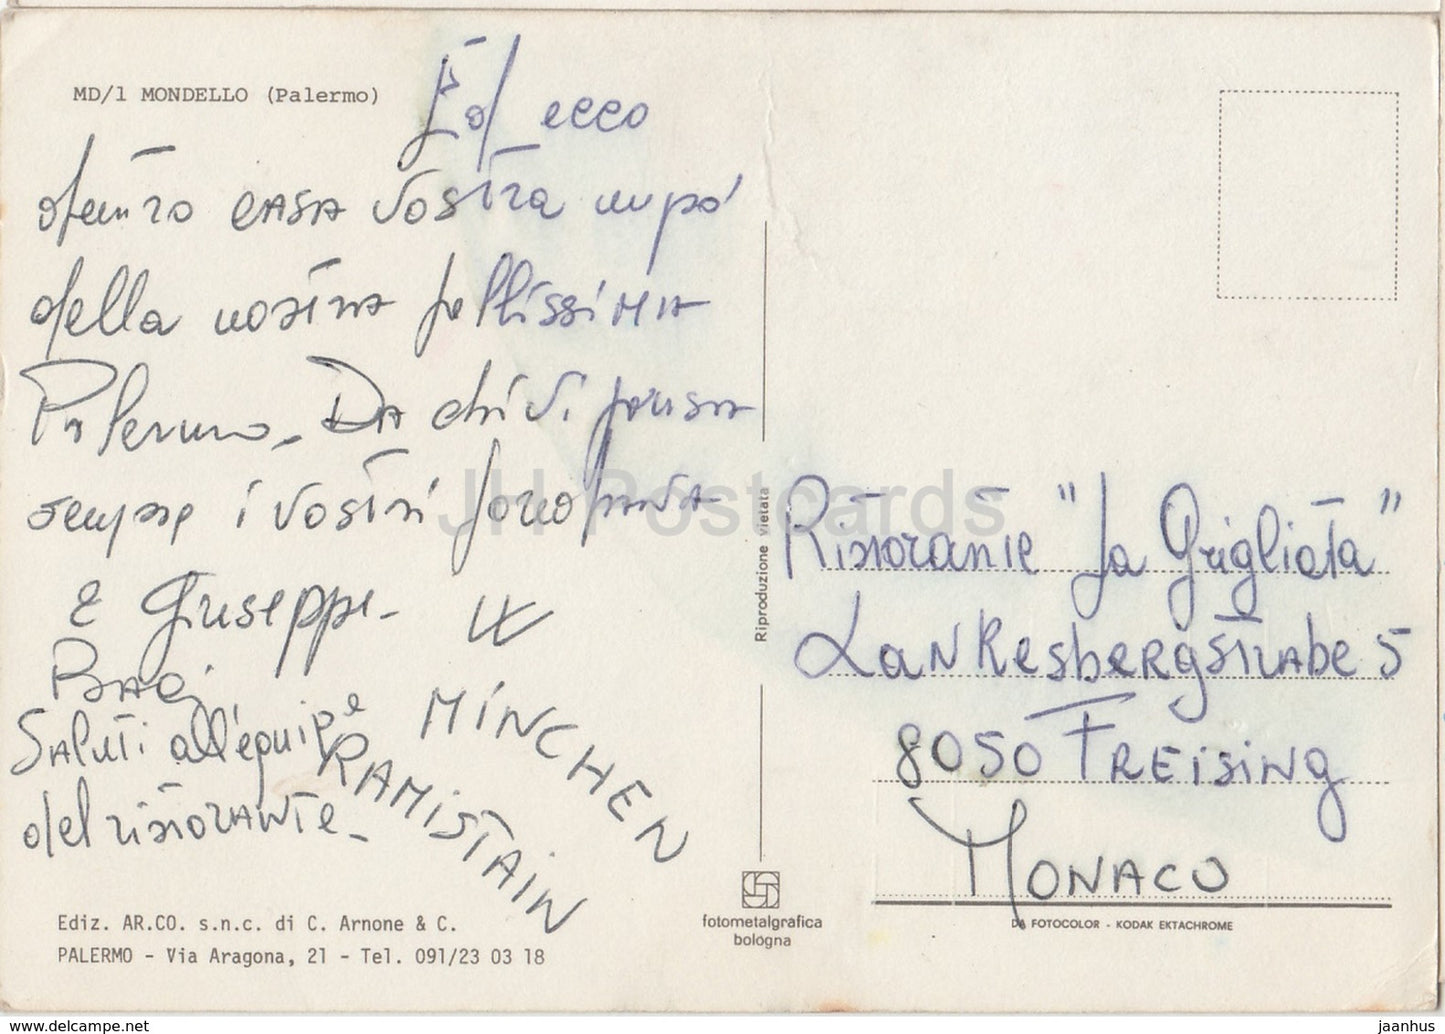 MD/1 MONDELLO (Palermo)
Ed ecco
dentro casa vostra un pò
della nostra bellissima
Palermo. Da chi vi pensa
sempre i vostri
e Giuseppe -
Baci
Saluti all'équipe
del ristorante -
W
MINCHEN
RAMISTAIN
Ediz. AR.CO. s.n.c. di C. Arnone & C.
PALERMO - Via Aragona, 21 - Tel. 091/23 03 18
Riproduzione vietata
fotometalgrafica
bologna
Ristorante "La Grigliata"
Lankesbergstrabe 5
8050 FREISING
MONACO
DA FOTOCOLOR - KODAK EKTACHROME
JH Postcards
www.delcampe.net
jaanhus